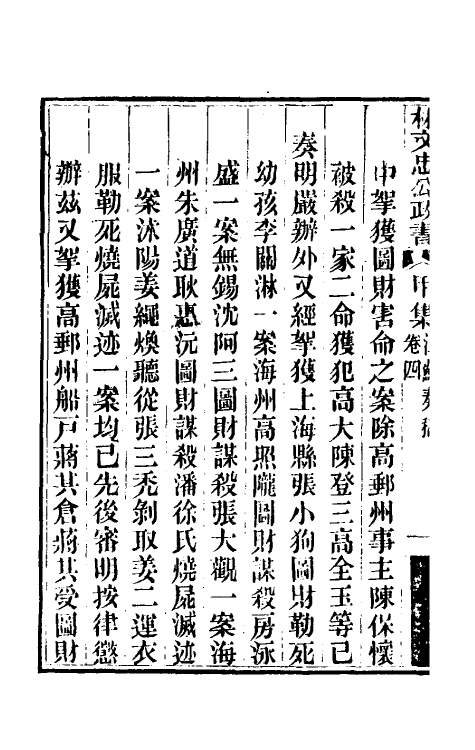 林文忠公政書 甲集 卷四 奏稿
中拏獲圖財害命之案除高郵州事主陳保懷
被殺一家二命獲犯高大陳登三高全玉等已
奏明嚴辦外又經拏獲上海縣張小狗圖財勒死
幼孩李關淋一案海州高照隴圖財謀殺房泳
盛一案無錫沈阿三圖財謀殺張大觀一案海
州朱廣道耿惠沅圖財謀殺潘徐氏燒屍滅迹
一案沭陽姜繩煥聽從張三禿剝取姜二運衣
服勒死燒屍滅迹一案均已先後審明按律懲
辦茲又拏獲高郵州船戶蔣其倉蔣其受圖財